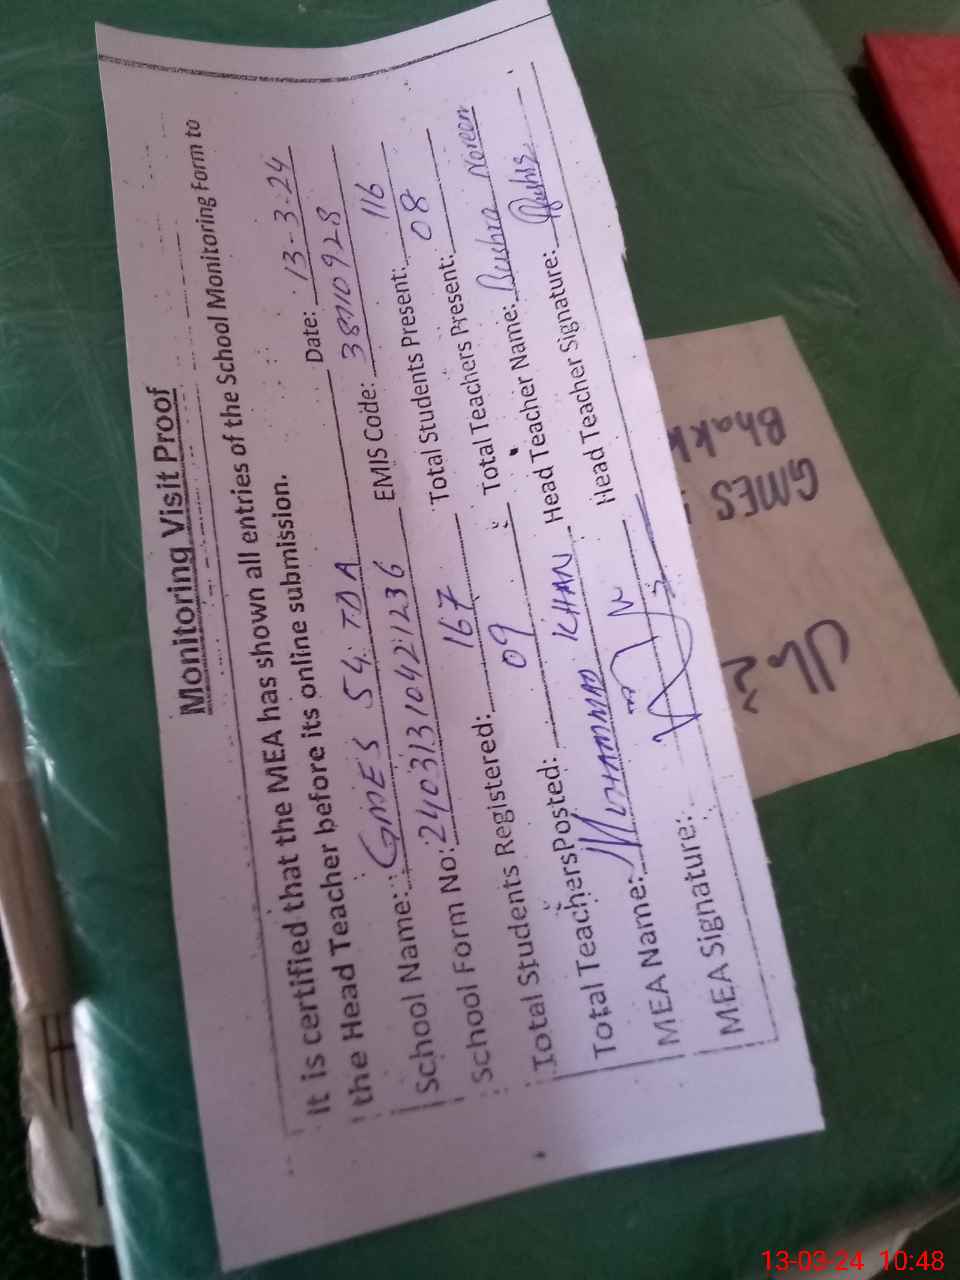 Monitoring Visit Proof
It is certified that the MEA has shown all entries of the School Monitoring Form to
the Head Teacher before its online submission.
School Name: GMES 54 TDA Date: 13-3-24
School Form No: 24031310421236 EMIS Code: 38110928
Total Students Registered: 167 Total Students Present: 116
Total TeachersPosted: 09 Total Teachers Present: 08
MEA Name: MUHAMMAD KHAN Head Teacher Name: Bushra Noreen
MEA Signature: Head Teacher Signature:
GMES
Bhakk
13-03-24 10:48